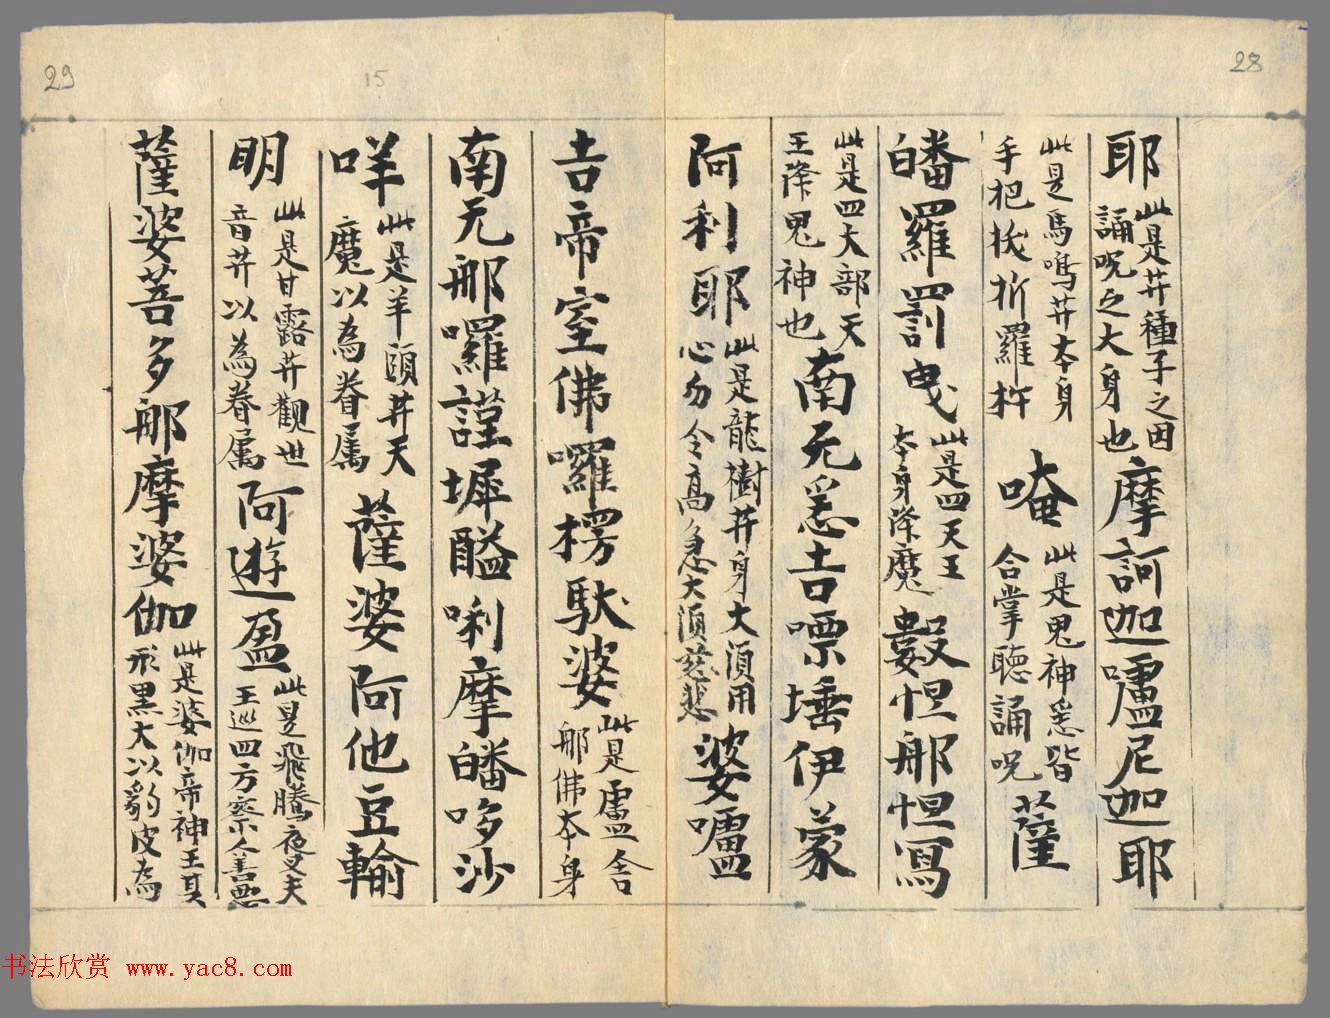 28
耶
此是𦬇種子之因
誦呪之大身也
摩訶迦嚧尼迦耶
此是馬鳴𦬇本身
手把拔折羅杵
唵
此是鬼神悉皆
合掌聴誦呪
薩
皤羅罰曳
此是四天王
本身降魔
數怛那怛寫
此是四大部天
王降鬼神也
南无悉吉㗼埵伊蒙
阿利耶
此是龍樹𦬇身大湏用
心勿令高急大湏慈悲
婆嚧
吉帝室佛囉楞馱婆
此是盧舎
那佛本身
南无那囉謹墀醯唎摩皤哆沙
咩
此是羊頭𦬇天
魔以為眷属
薩婆阿他豆輸
明
此是甘露𦬇觀世
音𦬇以為眷属
阿遊盈
此是飛騰夜叉天
王巡四方察人善悪
薩婆菩多那摩婆伽
此是婆伽帝神王其
形黒大以豹皮為
15
29
书法欣赏 www.yac8.com